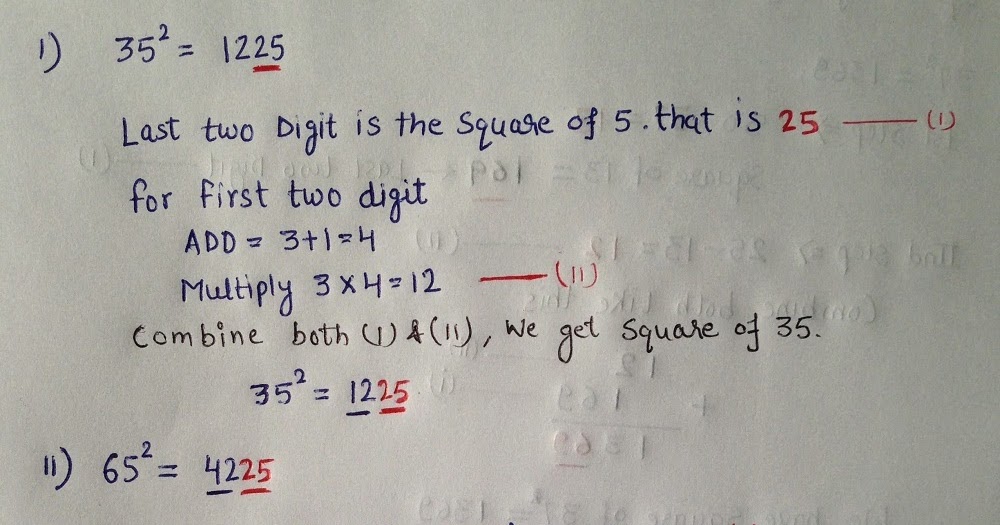 1) 35² = 1225
Last two Digit is the Square of 5. that is 25 —— (1)
for first two digit
ADD = 3+1=4
Multiply 3×4=12 —— (11)
Combine both (1) & (11), We get Square of 35.
35² = 1225
11) 65² = 4225